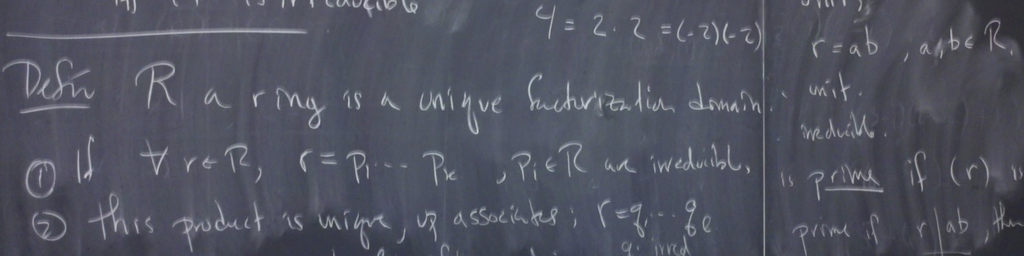 is irreducible
4 = 2 · 2 = (-2)(-2)
Defn R a ring is a unique factorization domain
① If ∀ r ∈ R, r = p₁ ... pₖ, pᵢ ∈ R are irreducible,
② this product is unique, up associates; r = q₁ ... qₑ
irred
r = ab, a,b ∈ R,
unit.
irreducible.
is prime if (r) is
prime if r | ab, then